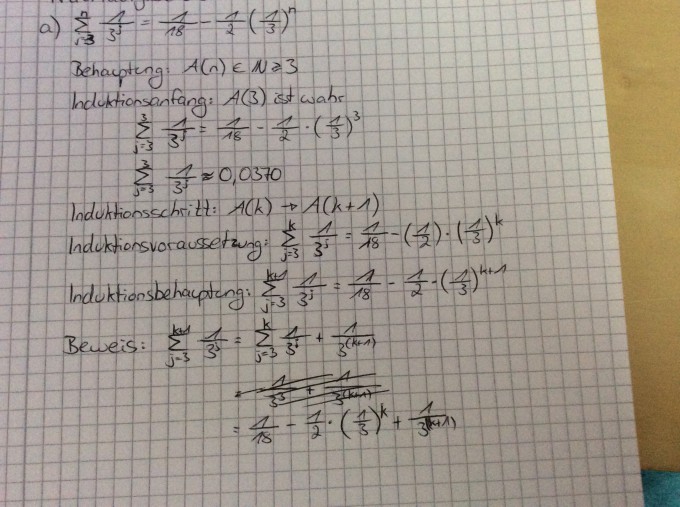 a) \sum_{j=3}^{n} \frac{1}{3^j} = \frac{1}{18} - \frac{1}{2} \left(\frac{1}{3}\right)^n
Behauptung: A(n) ∈ N ≥ 3
Induktionsanfang: A(3) ist wahr
\sum_{j=3}^{3} \frac{1}{3^j} = \frac{1}{18} - \frac{1}{2} \cdot \left(\frac{1}{3}\right)^3
\sum_{j=3}^{3} \frac{1}{3^j} ≈ 0,0370
Induktionsschritt: A(k) → A(k+1)
Induktionsvoraussetzung: \sum_{j=3}^{k} \frac{1}{3^j} = \frac{1}{18} - \left(\frac{1}{2}\right) \cdot \left(\frac{1}{3}\right)^k
Induktionsbehauptung: \sum_{j=3}^{k+1} \frac{1}{3^j} = \frac{1}{18} - \frac{1}{2} \cdot \left(\frac{1}{3}\right)^{k+1}
Beweis: \sum_{j=3}^{k+1} \frac{1}{3^j} = \sum_{j=3}^{k} \frac{1}{3^j} + \frac{1}{3^{(k+1)}}
= \frac{1}{3^3} + \frac{1}{3^{(k+1)}}
= \frac{1}{18} - \frac{1}{2} \cdot \left(\frac{1}{3}\right)^k + \frac{1}{3^{(k+1)}}